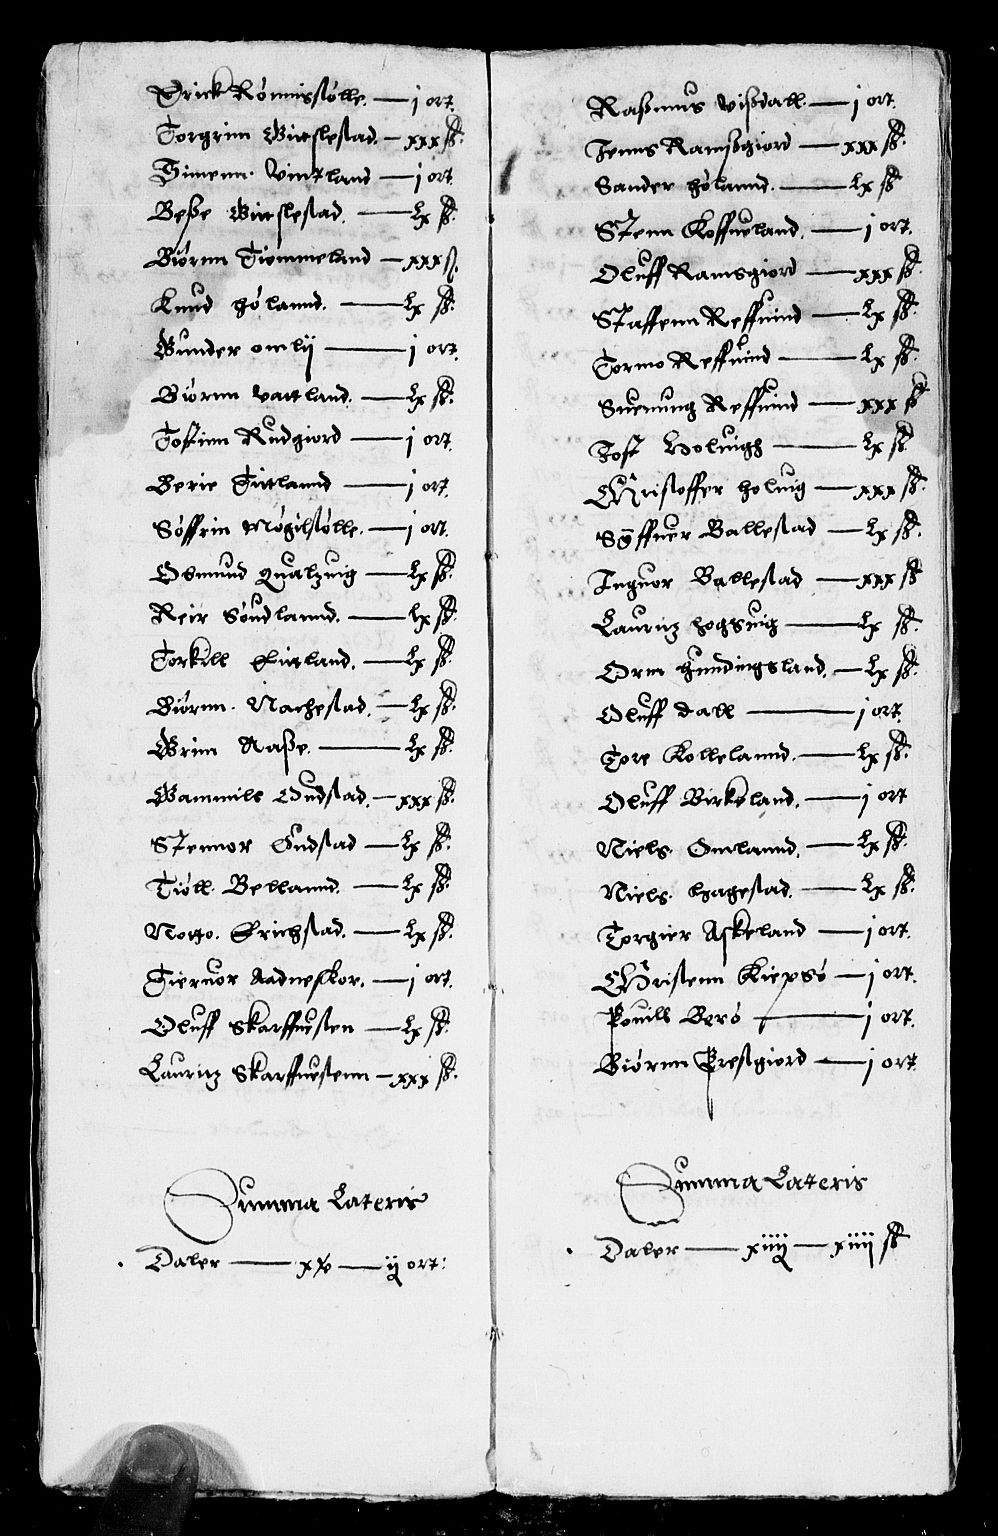 Erick Rönnistölle. — j ort.
Torgrim Wirslestad. — xxx ß.
Simenn Vintland — j ort.
Beße Wirslestad. — Lx ß.
Biörnn Tiemmeland — xxx ß.
Knud Hölannd. — Lx ß.
Gunder omlij — j ort.
Biörnn Vattland. — Lx ß.
Tostenn Rudgiord — j ort.
Berie Tittlannd — j ort.
Söffrin Mögilstölle. — j ort.
Osmund Qualzuig — Lx ß.
Reir Söudlannd. — Lx ß.
Torkill Littland. — Lx ß.
Biörnn Nachestad. — Lx ß.
Grim Aaße. — Lx ß.
Gammill Oudstad. — xxx ß.
Stennor Oudstad — Lx ß.
Tiöll Bellannd. — Lx ß.
Notto Erichstad. — Lx ß.
Tieruor Aadneskor. — j ort.
Oluff Skarffuesten — Lx ß.
Lauritz Skarffuestenn — xxx ß.
Summa Lateris
Daler — xv — ij ort:
Raßmus Vißdall — j ort.
Jenns Ramsßgiord — xxx ß.
Sander Hölannd. — Lx ß.
Stenn Koffueland. — j ort.
Oluff Ramsgiord — xxx ß.
Staffenn Reffuind — Lx ß.
Tormo Reffuind — Lx ß.
Suenung Reffuind — xxx ß
Jost Holuigh — Lx ß
Christoffer Holuig — xxx ß.
Syffuer Ballestad — Lx ß.
Inguor Ballestad — xxx ß
Lauritz Hogsuig — Lx ß.
Orm Hundingsland. — Lx ß.
Oluff Dall — j ort.
Tore Kollelannd — Lx ß.
Oluff Birkeland. — j ort
Niels Omlannd. — Lx ß.
Niels Hagestad. — Lx ß.
Torgier Askeland — j ort.
Christenn Kiepsö — j ort.
Pouill Berö — j ort.
Biörnn Prestgiord — j ort
Summa Lateris
Daler — xiiij — xiiij ß